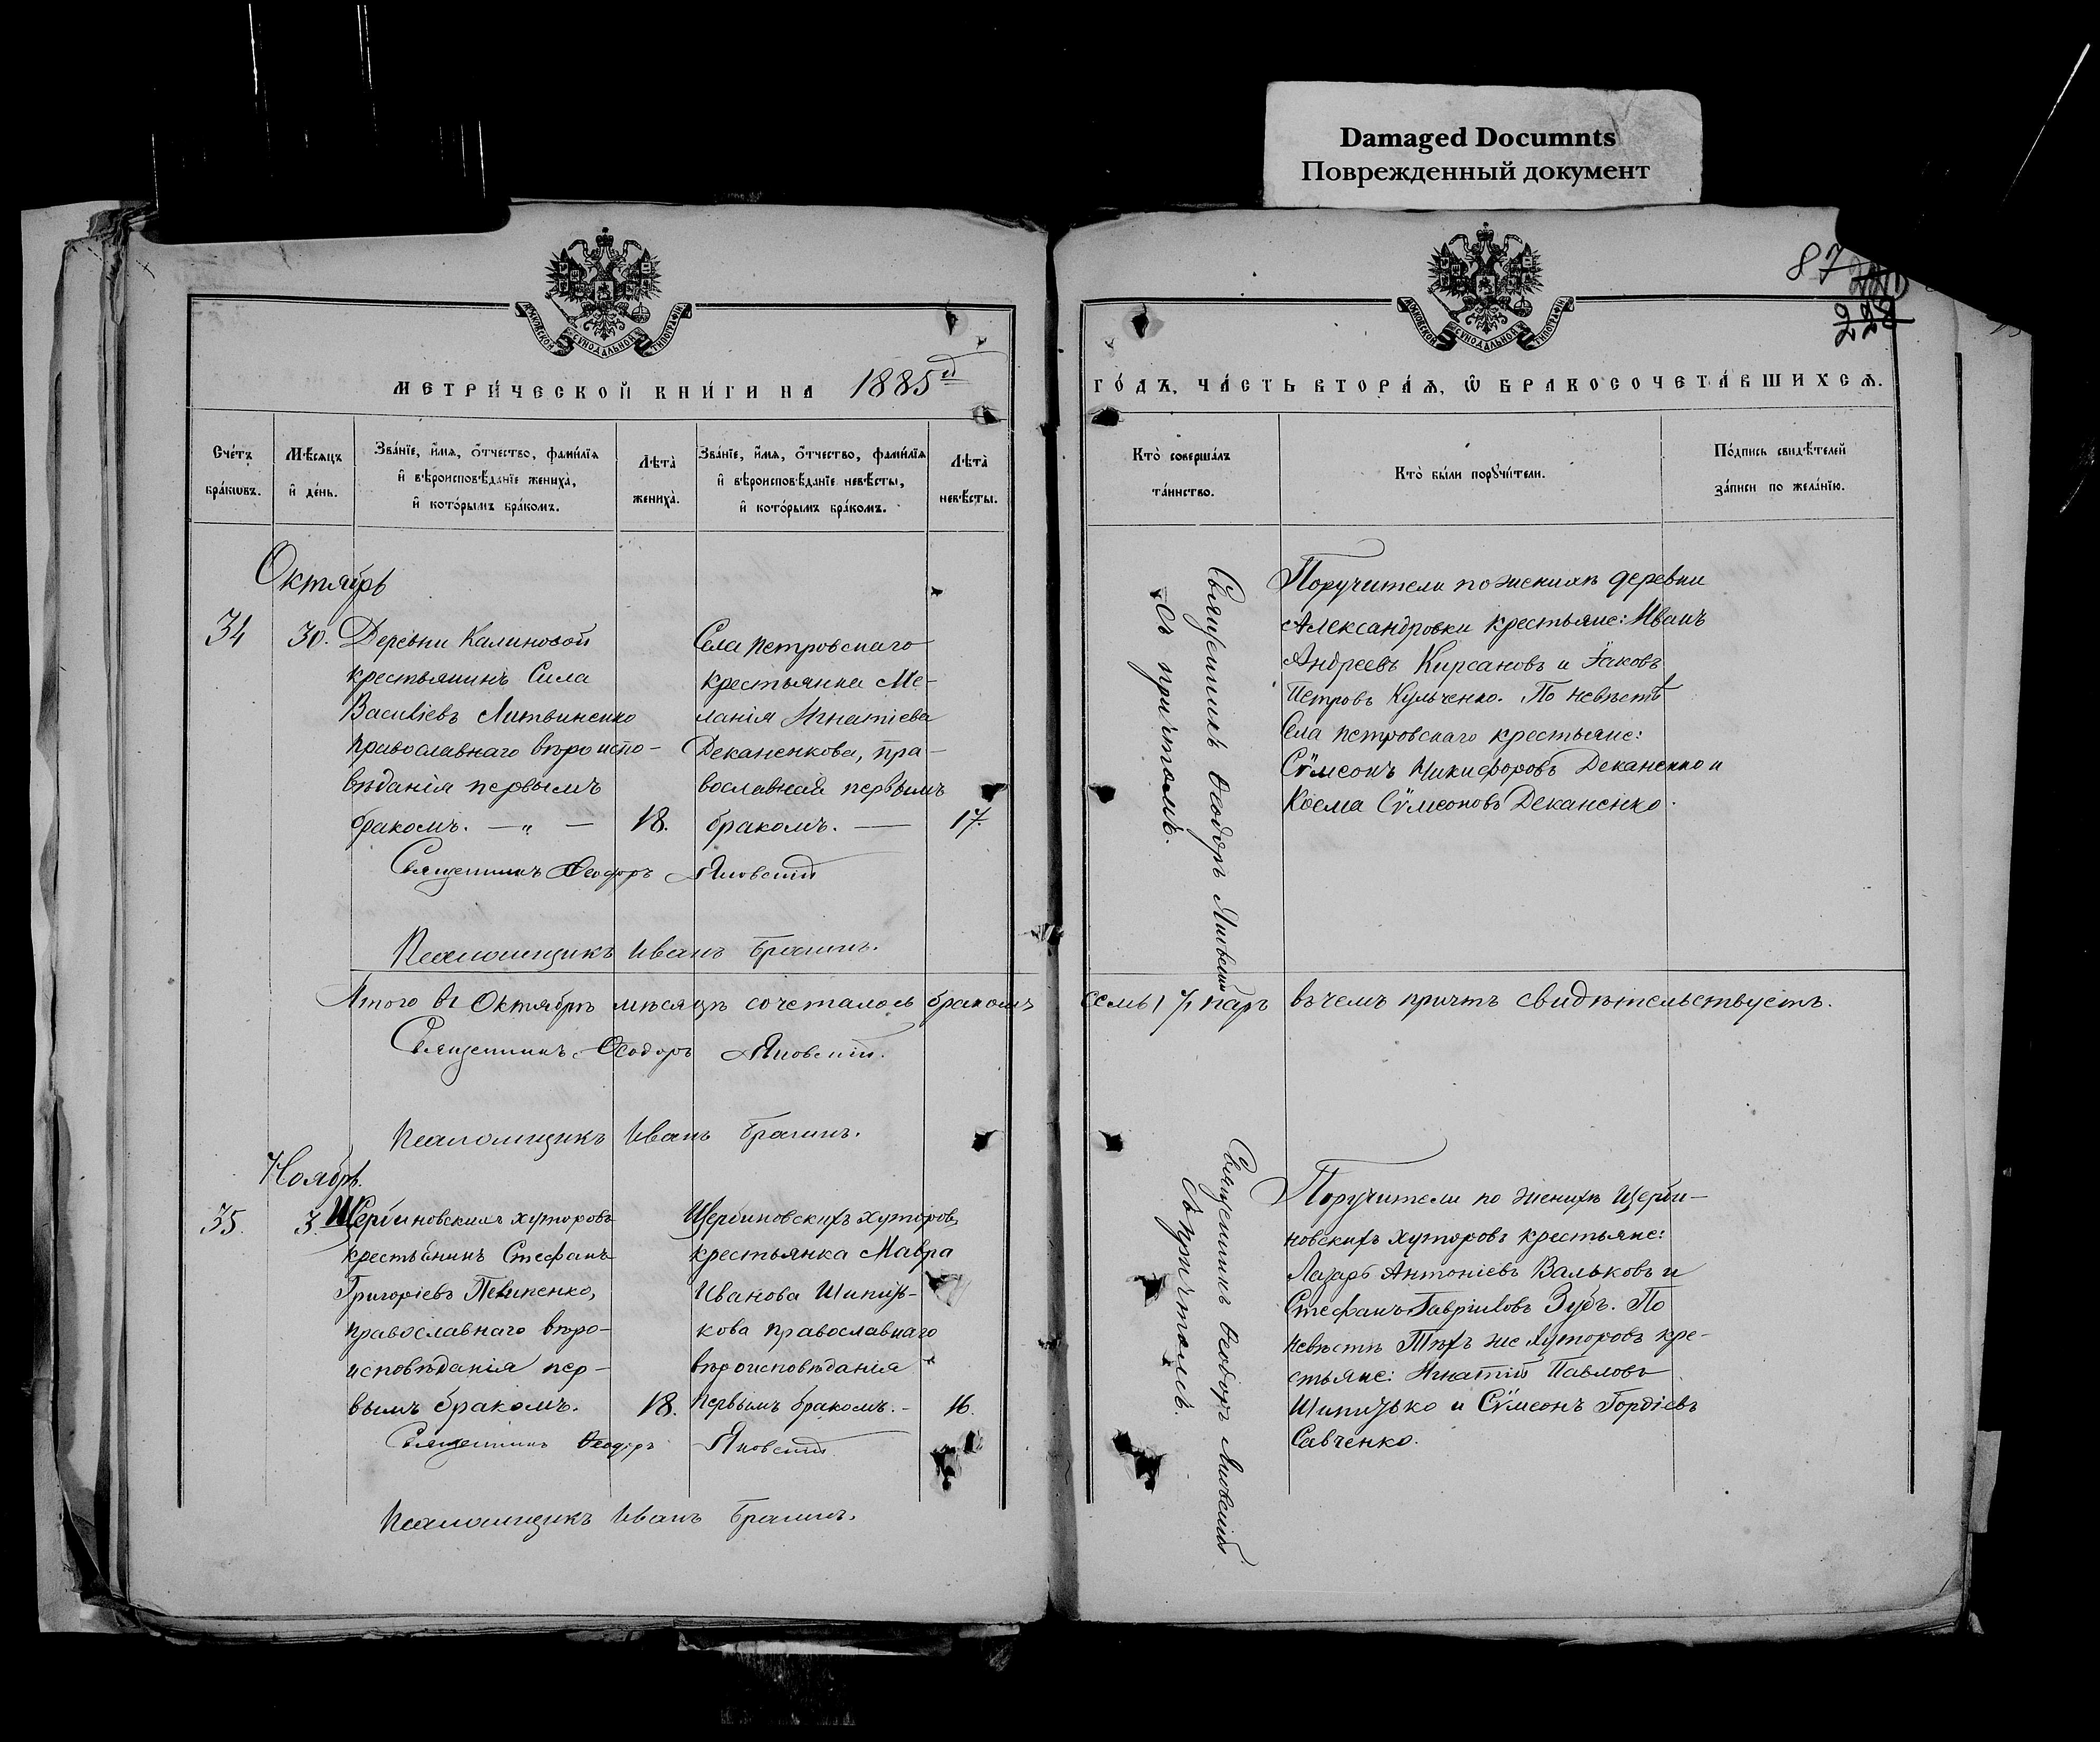 Damaged Documnts
Поврежденный документ
87
228
МОСКОВСКОЙ СѴНОДАЛЬНОЙ ТИПОГРАФІИ
МОСКОВСКОЙ СѴНОДАЛЬНОЙ ТИПОГРАФІИ
МЕТРИ́ЧЕСКОЙ КНИ́ГИ НА 1885й
ГО́ДЪ, ЧА́СТЬ ВТОРА́Ѧ, Ѽ БРАКОСОЧЕТА́ВШИХСѦ.
Сче́тъ
бра́кѡвъ.
Мѣ́сѧцъ
и҆ де́нь.
Зва́нїе, и҆́мѧ, ѻ҆́тчество, фами́лїѧ
и҆ вѣроисповѣ́данїе жениха̀,
и҆ кото́рымъ бра́комъ.
Лѣта̀
жениха̀.
Зва́нїе, и҆́мѧ, ѻ҆́тчество, фами́лїѧ
и҆ вѣроисповѣ́данїе невѣ́сты,
и҆ кото́рымъ бра́комъ.
Лѣта̀
невѣ́сты.
Кто̀ соверша́лъ
та́инство.
Кто̀ бы́ли порꙋчи́тели.
По́дпись свидѣ́телей
за́писи по жела́нїю.
Октябрь
34
30.
Деревни Калиновой
крестьянинъ Сила
Василіевъ Литвиненко
православнаго вѣроиспо-
вѣданія первымъ
бракомъ. — „ —
18.
Села петровскаго
крестьянка Ме-
ланія Игнатіева
Деканенкова, пра-
вославная первымъ
бракомъ. —
17.
Священникъ Ѳеодоръ Яновскій
съ причтомъ.
Поручители по женихѣ деревни
Александровки крестьяне: Иванъ
Андреевъ Кирсановъ и Іаковъ
Петровъ Кульченко. По невѣстѣ
Села петровскаго крестьяне:
Сѵмеонъ Никифоровъ Деканенко и
Косма Сѵмеоновъ Деканенко.
Священникъ Ѳеодоръ Яновскій
Псаломщикъ Иванъ Брагинъ.
Итого въ Октябрѣ мѣсяцѣ сочеталось бракомъ семь / 7 / паръ въ чемъ причтъ свидѣтельствуетъ.
Священникъ Ѳеодоръ Яновскій.
Псаломщикъ Иванъ Брагинъ.
Ноябрь.
35.
3.
Щербиновскихъ хуторовъ
крестьянинъ Стефанъ
Григоріевъ
православнаго вѣро-
исповѣданія пер-
вымъ бракомъ.
18.
Щербиновскихъ хуторовъ
крестьянка Мавра
Иванова Шипиць-
кова православнаго
вѣроисповѣданія
первымъ бракомъ. -
16.
Священникъ Ѳеодоръ Яновскій
съ причтомъ.
Поручители по женихѣ Щерби-
новскихъ хуторовъ крестьяне:
Лазарь Антоніевъ Вальковъ и
Стефанъ Гавріиловъ Зубъ. По
невѣстѣ Тѣхъ же хуторовъ кре-
стьяне: Игнатій Павловъ
Шипицько и Сѵмеонъ Гордіевъ
Савченко.
Священникъ Ѳеодоръ Яновскій
Псаломщикъ Иванъ Брагинъ.